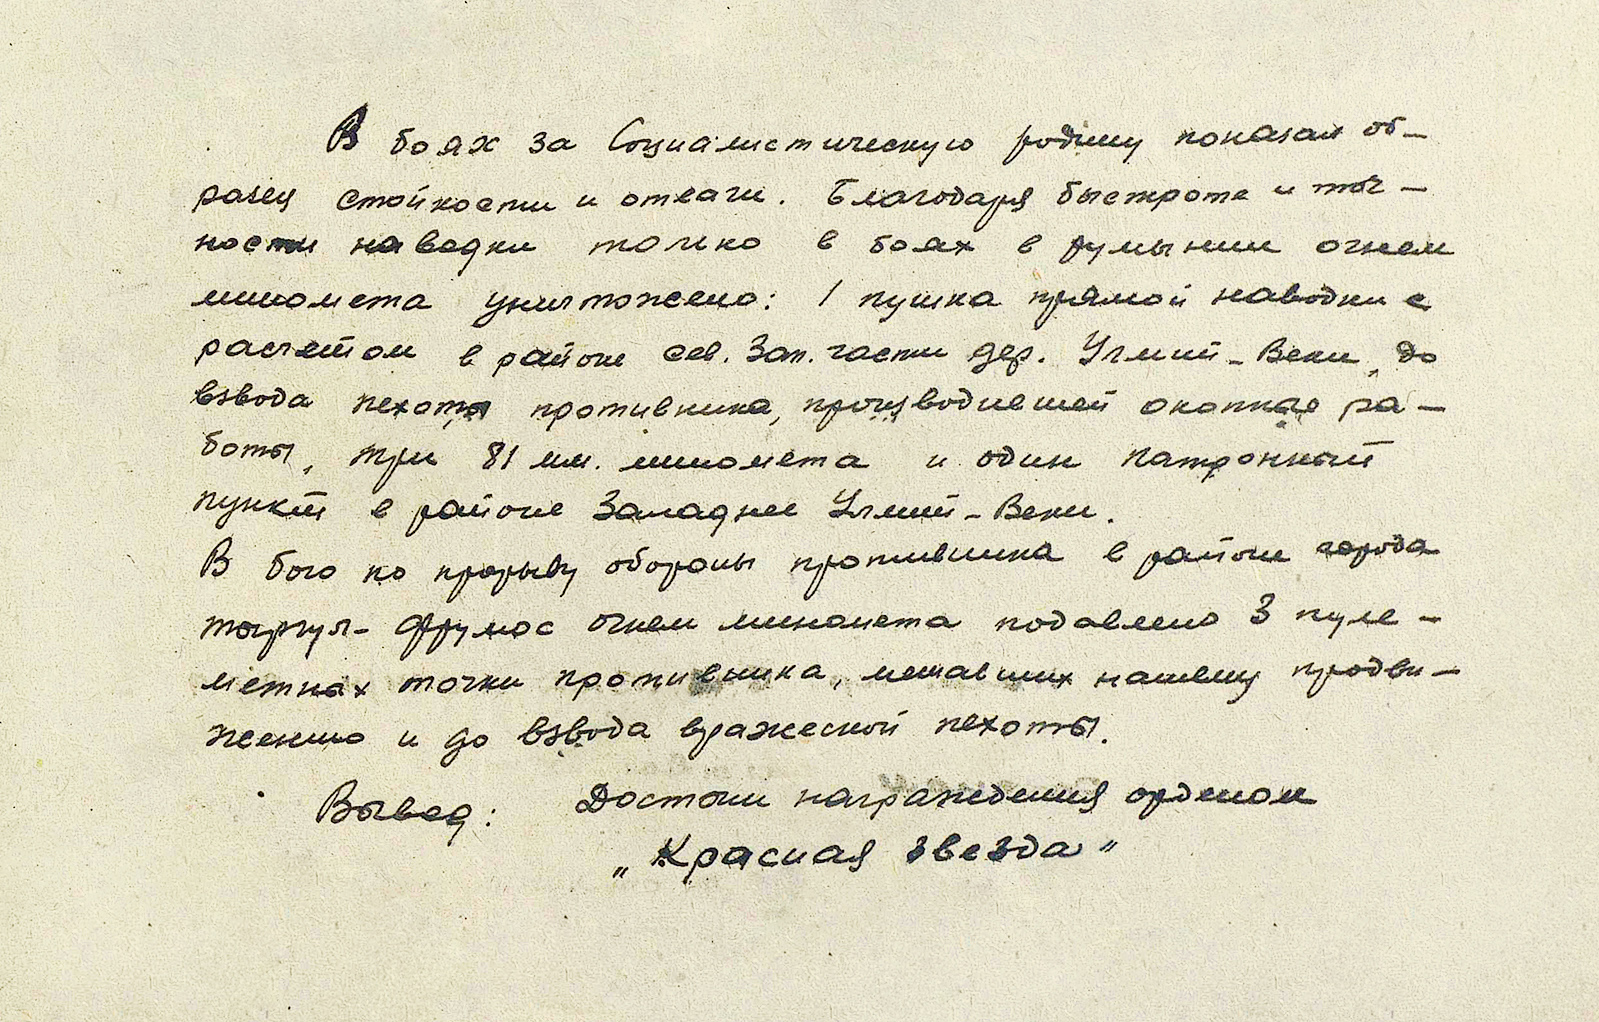 В боях за Социалистическую родину показал об-
разец стойкости и отваги. Благодаря быстроте и точ-
ности наводки только в боях в румынии огнем
миномета уничтожено: 1 пушка прямой наводки с
расчетом в районе сев. Зап. части дер. Улмий-Веки, до
взвода пехоты противника, производившей окопные ра-
боты, три 81 мм. миномета и один патронный
пункт в районе Западнее Улмий-Веки.
В бою по прорыву обороны противника в районе города
тыргул-Фрумос огнем миномета подавлено 3 пуле-
метных точки противника, мешавших нашему продви-
жению и до взвода вражеской пехоты.
Вывод: Достоин награждения орденом
„Красная звезда"